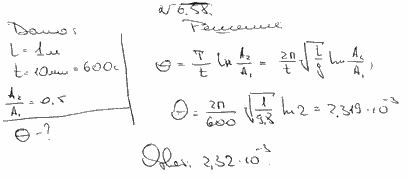 № 6.58.
Дано:
Решение
L = 1м
t = 10мин = 600с
A₂/A₁ = 0,5
Θ - ?
Θ = T/t ln A₂/A₁ = 2π/t √(L/g) ln A₂/A₁,
Θ = 2π/600 √(1/9,8) ln 2 = 2,319·10⁻³
Ответ: 2,32·10⁻³